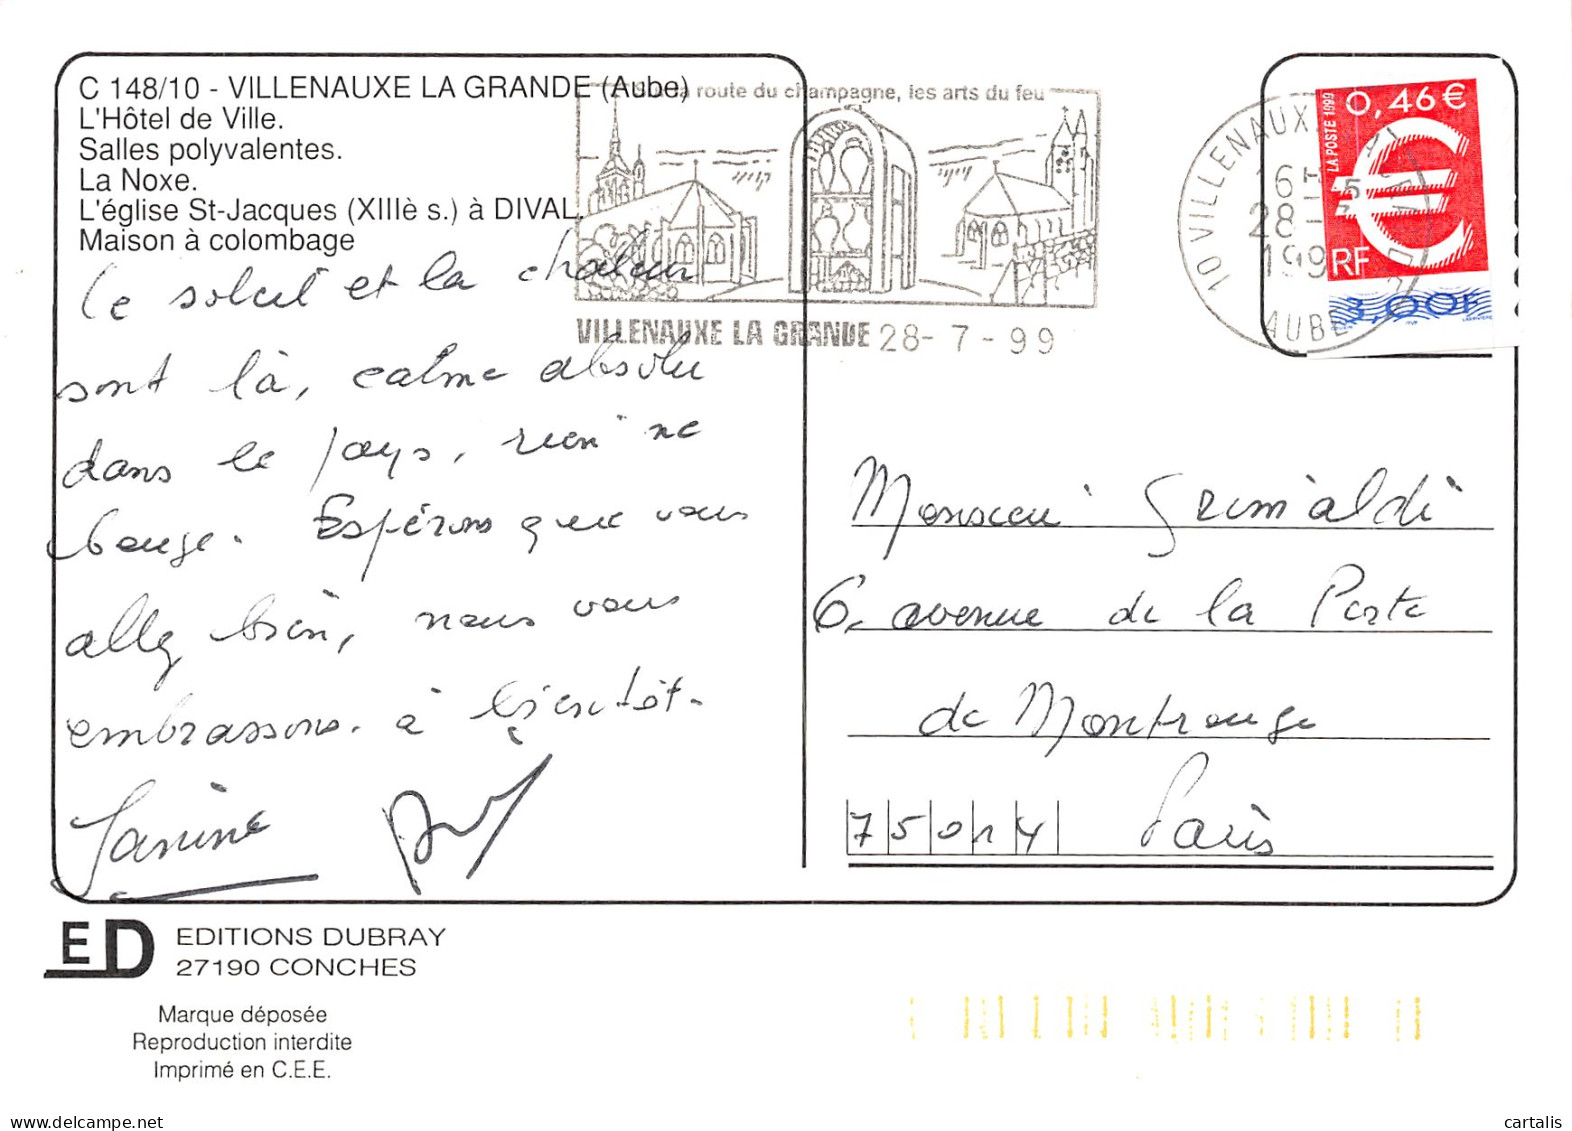 C 148/10 - VILLENAUXE LA GRANDE (Aube)
L'Hôtel de Ville.
Salles polyvalentes.
La Noxe.
L'église St-Jacques (XIIIè s.) à DIVAL.
Maison à colombage
Le soleil et la chaleur
sont là, calme absolu
dans le pays, rien ne
bouge. Espérons que vous
allez bien, nous vous
embrassons. à bientôt.
Janine
la route du champagne, les arts du feu
VILLENAUXE LA GRANDE 28-7-99
10 VILLENAUX
28-
199
AUBE
LA POSTE 1999
0,46 €
€
RF
3,00F
Monsieur Grimaldi
6, avenue de la Porte
de Montrouge
75014 Paris
ED
EDITIONS DUBRAY
27190 CONCHES
Marque déposée
Reproduction interdite
Imprimé en C.E.E.
delcampe.net
cartalis